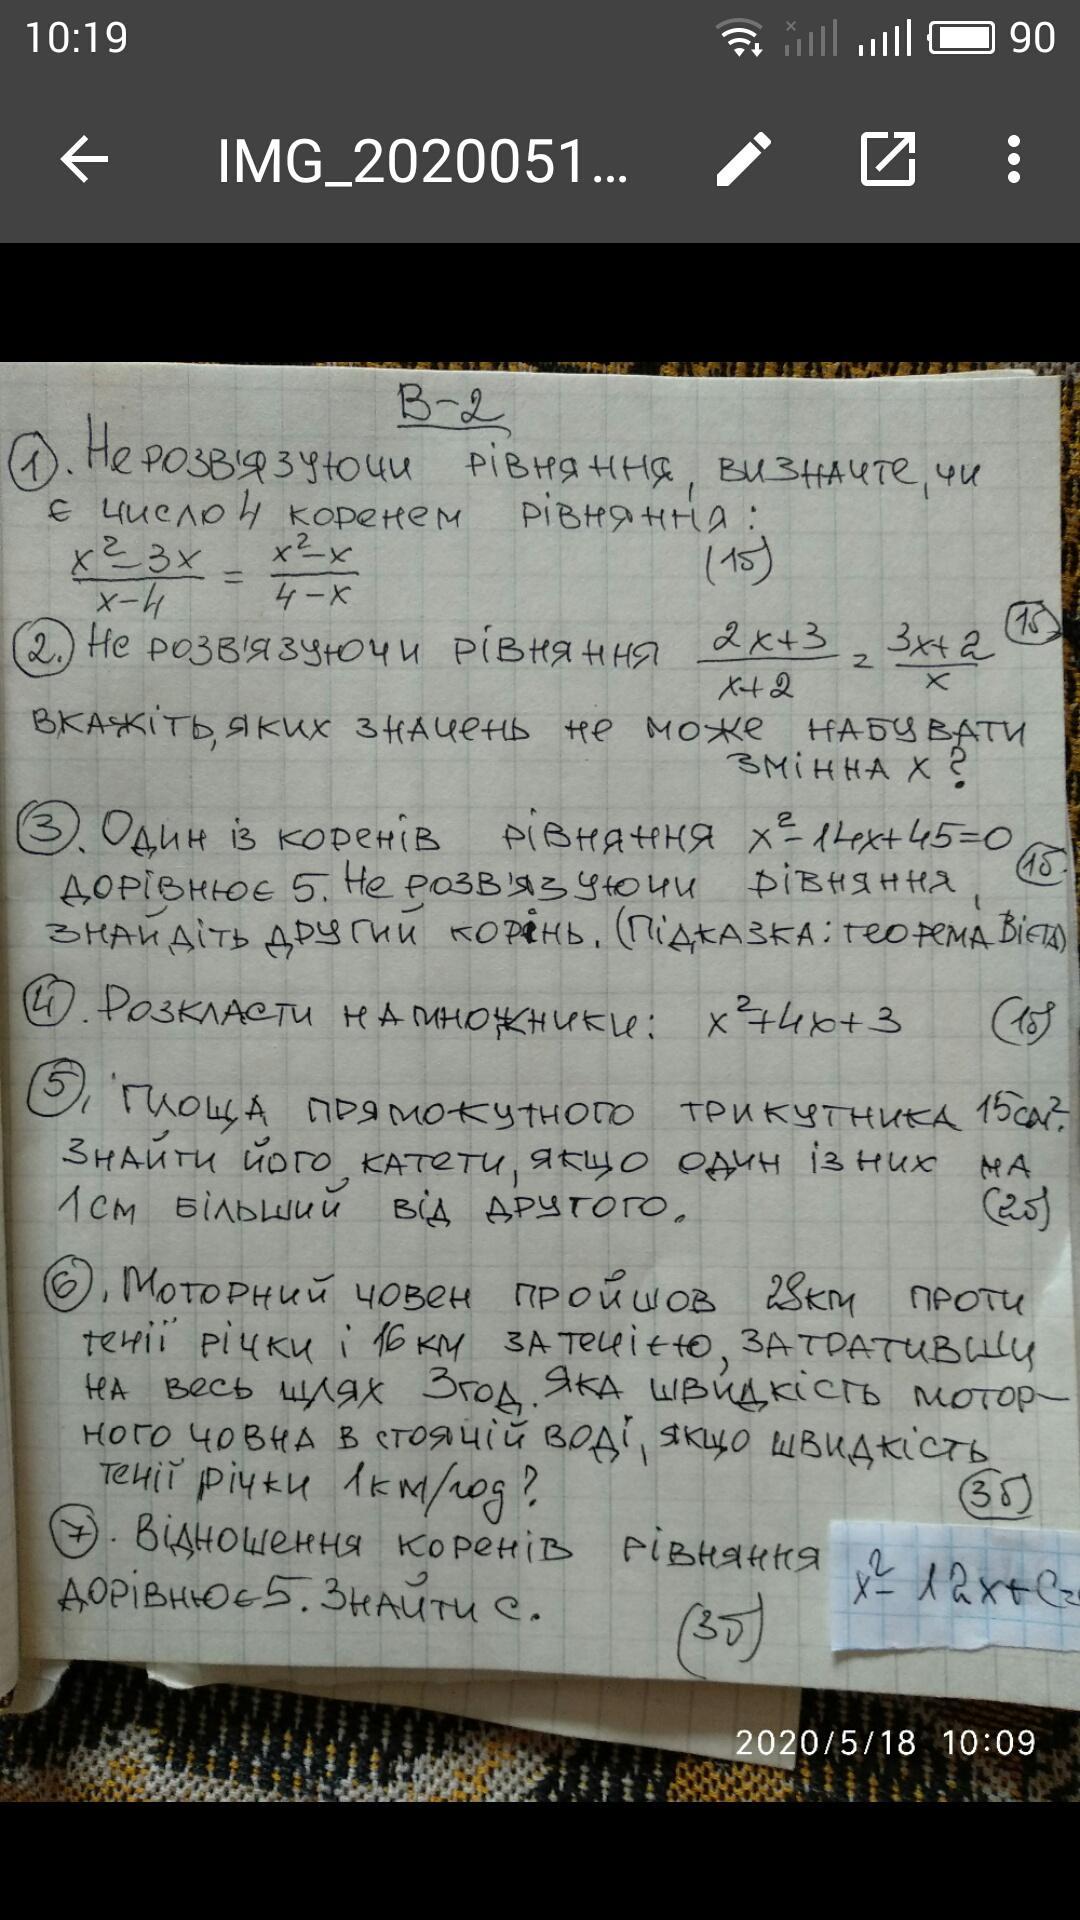 10:19
90
IMG_2020051...
В-2
1. Не розв'язуючи рівняння, визначте, чи
є число 4 коренем рівняння:
x²-3x/x-4 = x²-x/4-x (1б)
2. Не розв'язуючи рівняння 2x+3/x+2 = 3x+2/x (1б)
вкажіть, яких значень не може набувати
змінна x?
3. Один із коренів рівняння x²-14x+45=0
дорівнює 5. Не розв'язуючи рівняння, (1б)
знайдіть другий корінь. (Підказка: теорема Вієта)
4. Розкласти на множники: x²+4x+3 (1б)
5. Площа прямокутного трикутника 15см².
Знайти його катети, якщо один із них на
1см більший від другого. (2б)
6. Моторний човен пройшов 28км проти
течії річки і 16км за течією, затративши
на весь шлях 3год. Яка швидкість мотор-
ного човна в стоячій воді, якщо швидкість
течії річки 1км/год? (3б)
7. Відношення коренів рівняння x²-12x+c=
дорівнює 5. Знайти c. (3б)
2020/5/18 10:09